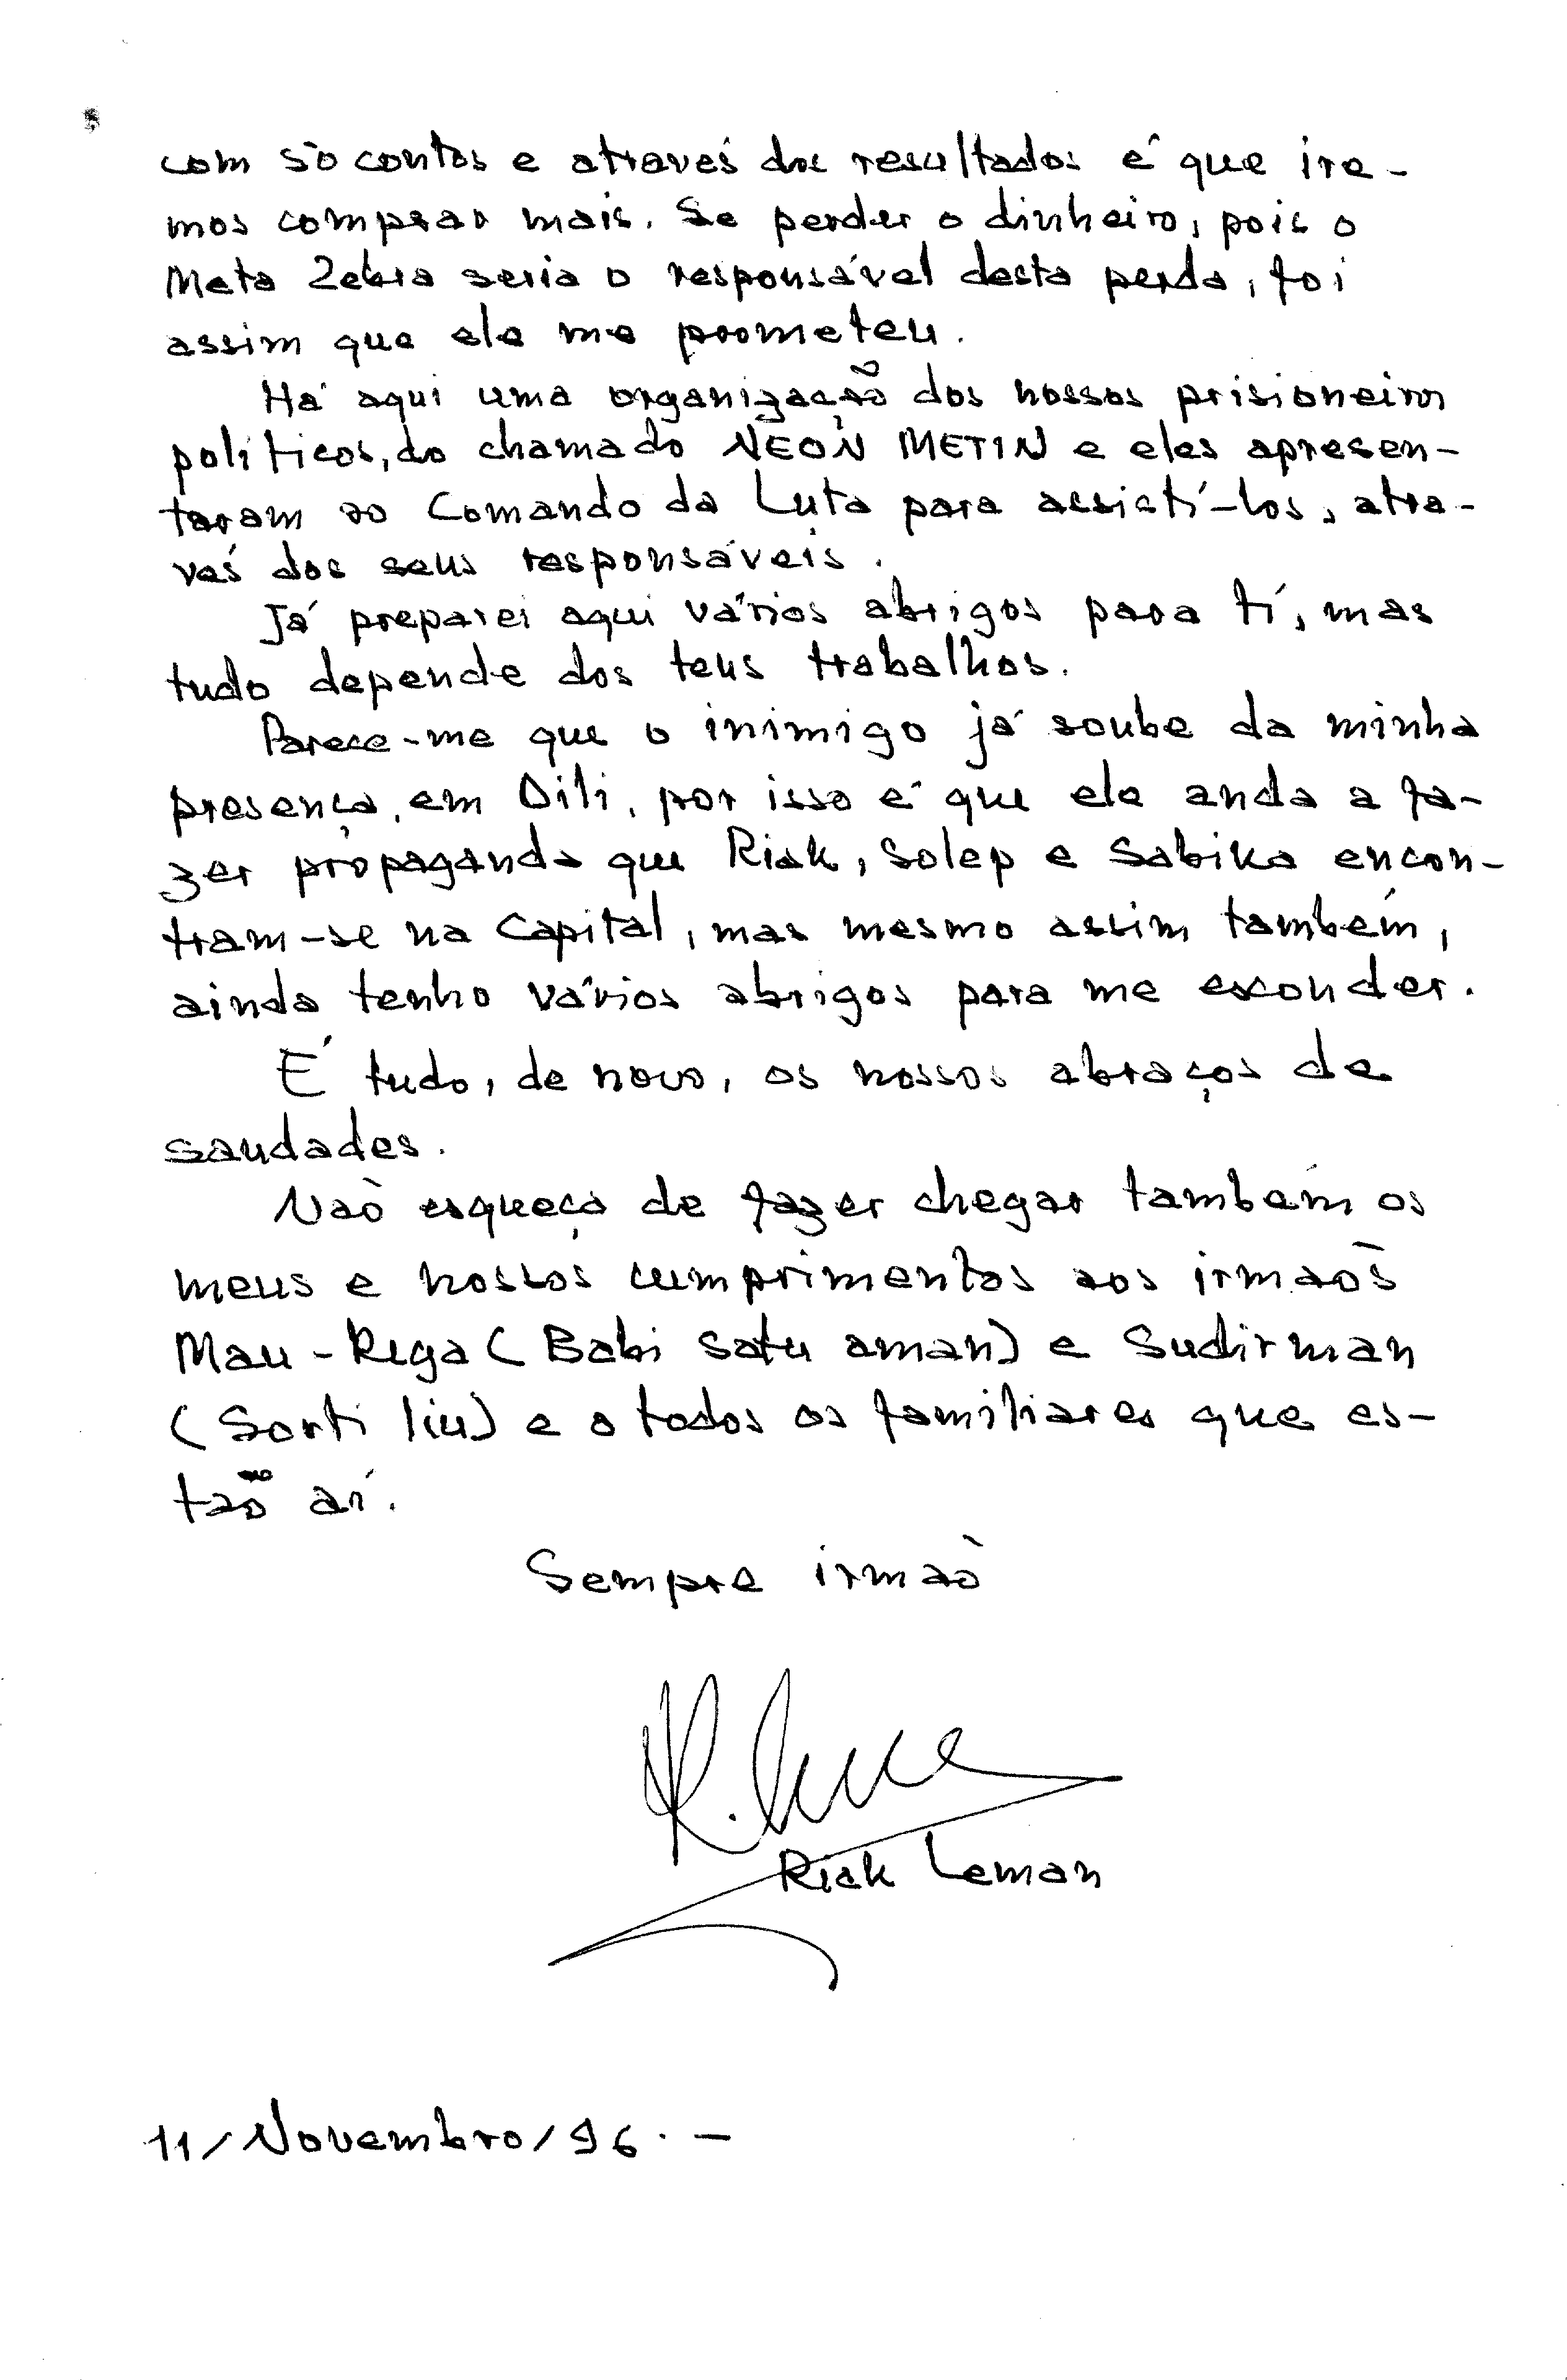 com só contos e através dos resultados é que ire-
mos comprar mais. Se perder o dinheiro, pois o
Meta Zebra seria o responsável desta perda, foi
assim que ele me prometeu.
Há aqui uma organização dos nossos prisioneiros
políticos, do chamado NEON METIN e eles apresen-
taram ao Comando da Luta para assistí-los, atra-
vés dos seus responsáveis.
Já preparei aqui vários abrigos para tí, mas
tudo depende dos teus trabalhos.
Parece-me que o inimigo já soube da minha
presença, em Dili, por isso é que ele anda a fa-
zer propaganda que Riak, Solep e Sabika encon-
tram-se na Capital, mas mesmo assim também,
ainda tenho vários abrigos para me esconder.
É tudo, de novo, os nossos abraços de
saudades.
Não esqueça de fazer chegar também os
meus e nossos cumprimentos aos irmãos
Mau-Rega (Babi satu aman) e Sudirman
(Sorti liu) e a todos os familiares que es-
tão aí.
Sempre irmão
Riak Leman
11/Novembro/96.-